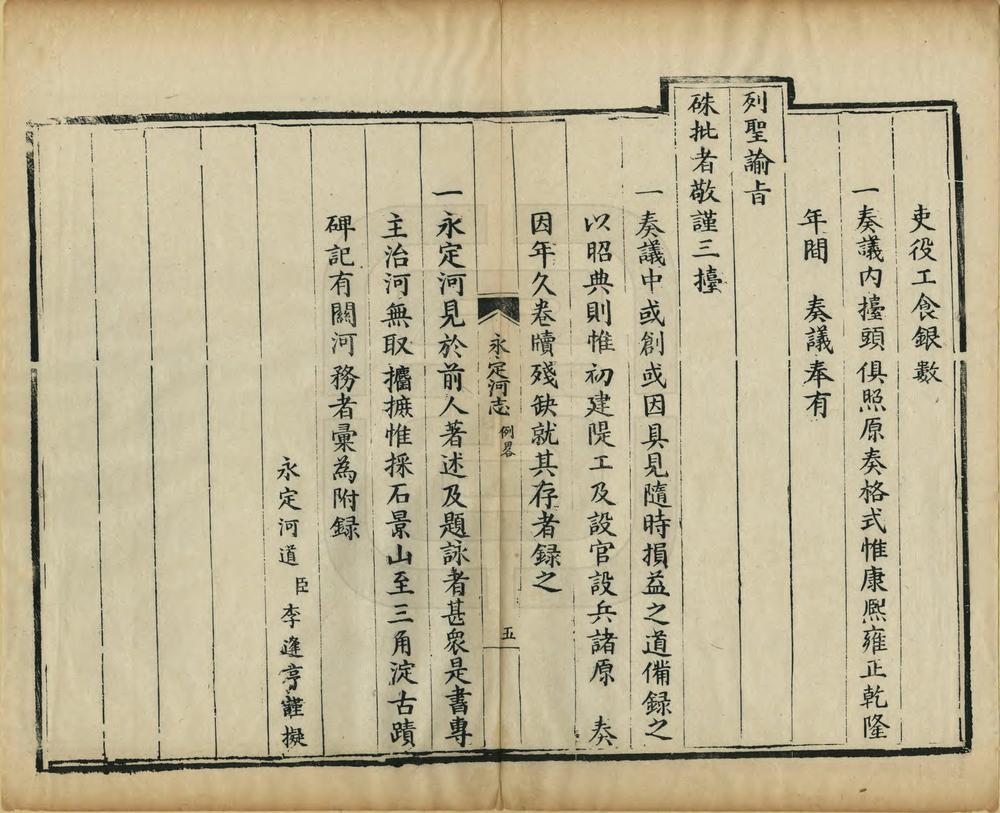 吏役工食銀數
一奏議内擡頭俱照原奏格式惟康熙雍正乾隆
年間　奏議奉有
列聖諭旨
硃批者敬謹三擡
一奏議中或創或因具見隨時損益之道備録之
以昭典則惟初建隄工及設官設兵諸原　奏
因年久卷牘殘缺就其存者録之
永定河志 例畧 五
一永定河見於前人著述及題詠者甚衆是書專
主治河無取攟摭惟採石景山至三角淀古蹟
碑記有關河務者彙為附録
永定河道臣李逢亨謹擬